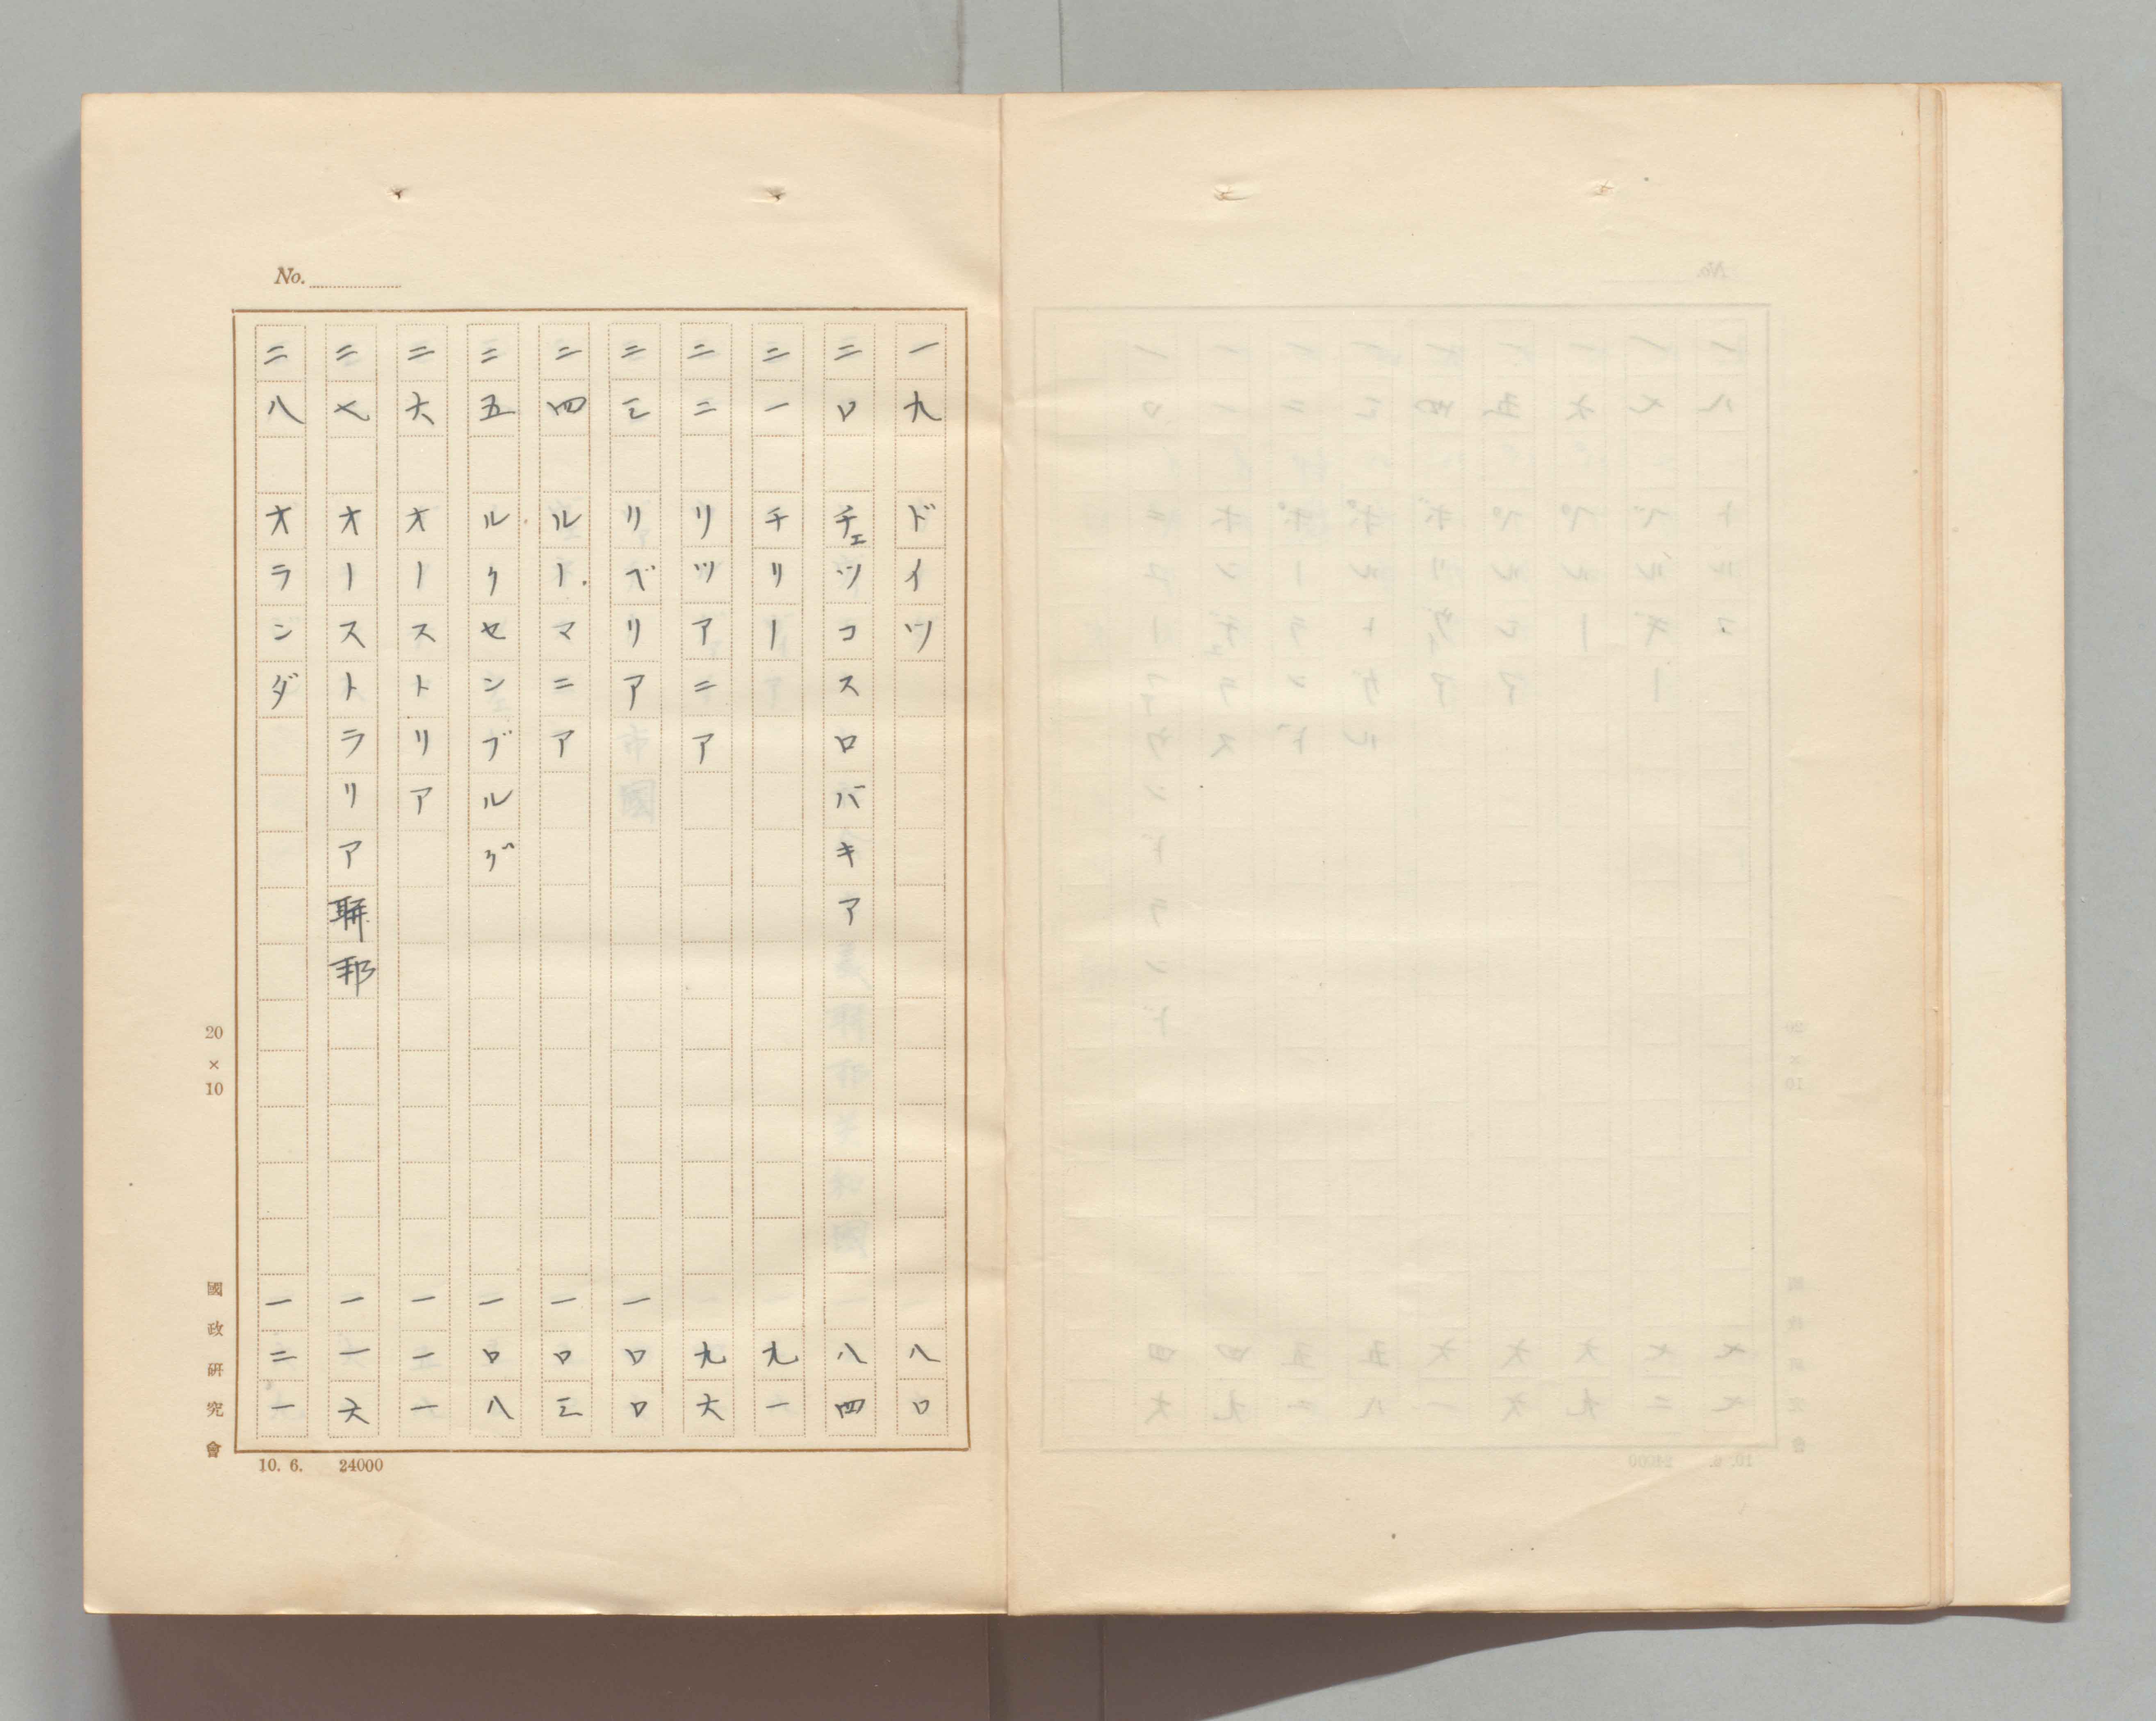 No.
一九 ドイツ 八〇
二〇 チェツコスロバキア 八四
二一 チリー 九一
二二 リツアニア 九六
二三 リベリア 一〇〇
二四 ルーマニア 一〇三
二五 ルクセンブルグ 一〇八
二六 オーストリア 一一一
二七 オーストラリア聯邦 一一六
二八 オランダ 一二一
20×10
國政研究會
10. 6. 24000